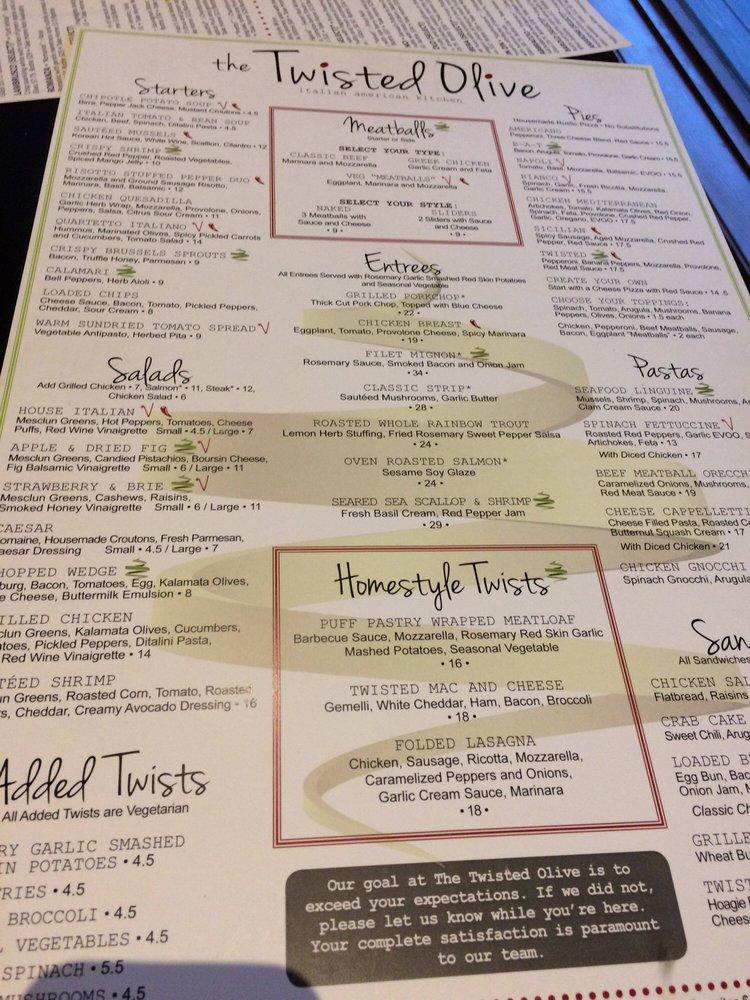 the Twisted Olive
italian american kitchen
Starters
CHIPOTLE POTATO SOUP
Pepper Jack Cheese, Mustard Croutons • 4.5
ITALIAN TOMATO & BEAN SOUP
Chicken, Beef, Spinach, Ditalini Pasta • 4.5
SAUTÉED MUSSELS
Korean Hot Sauce, White Wine, Scallion, Cilantro • 12
CRISPY SHRIMP
Crushed Red Pepper, Roasted Vegetables,
Spiced Mango Jelly • 10
RISOTTO STUFFED PEPPER DUO
Mozzarella and Ground Sausage Risotto,
Marinara, Basil, Balsamic • 12
CHICKEN QUESADILLA
Garlic Herb Wrap, Mozzarella, Provolone, Onions,
Peppers, Salsa, Citrus Sour Cream • 11
QUARTETTO ITALIANO
Hummus, Marinated Olives, Spicy Pickled Carrots
and Cucumbers, Tomato Salad • 14
CRISPY BRUSSELS SPROUTS
Bacon, Truffle Honey, Parmesan • 9
CALAMARI
Bell Peppers, Herb Aioli • 9
LOADED CHIPS
Cheese Sauce, Bacon, Tomato, Pickled Peppers,
Cheddar, Sour Cream • 8
WARM SUNDRIED TOMATO SPREAD
Vegetable Antipasto, Herbed Pita • 9
Salads
Add Grilled Chicken • 7, Salmon* • 11, Steak* • 12,
Chicken Salad • 6
HOUSE ITALIAN
Mesclun Greens, Hot Peppers, Tomatoes, Cheese
Puffs, Red Wine Vinaigrette Small • 4.5 / Large • 7
APPLE & DRIED FIG
Mesclun Greens, Candied Pistachios, Boursin Cheese,
Fig Balsamic Vinaigrette Small • 6 / Large • 11
STRAWBERRY & BRIE
Mesclun Greens, Cashews, Raisins,
Smoked Honey Vinaigrette Small • 6 / Large • 11
CAESAR
omaine, Housemade Croutons, Fresh Parmesan,
aesar Dressing Small • 4.5 / Large • 7
HOPPED WEDGE
burg, Bacon, Tomatoes, Egg, Kalamata Olives,
e Cheese, Buttermilk Emulsion • 8
ILLED CHICKEN
clun Greens, Kalamata Olives, Cucumbers,
atoes, Pickled Peppers, Ditalini Pasta,
Red Wine Vinaigrette • 14
TÉED SHRIMP
un Greens, Roasted Corn, Tomato, Roasted
rs, Cheddar, Creamy Avocado Dressing • 16
Added Twists
All Added Twists are Vegetarian
RY GARLIC SMASHED
IN POTATOES • 4.5
FRIES • 4.5
BROCCOLI • 4.5
L VEGETABLES • 4.5
SPINACH • 5.5
MUSHROOMS • 4.5
Meatballs
Starter or Side
SELECT YOUR TYPE:
CLASSIC BEEF
Marinara and Mozzarella
GREEK CHICKEN
Garlic Cream and Feta
VEG "MEATBALLS"
Eggplant, Marinara and Mozzarella
SELECT YOUR STYLE:
NAKED
3 Meatballs with
Sauce and Cheese
• 9 •
SLIDERS
2 Sliders with Sauce
and Cheese
• 9 •
Entrees
All Entrees Served with Rosemary Garlic Smashed Red Skin Potatoes
and Seasonal Vegetable
GRILLED PORKCHOP*
Thick Cut Pork Chop, Topped with Blue Cheese
• 22 •
CHICKEN BREAST
Eggplant, Tomato, Provolone Cheese, Spicy Marinara
• 19 •
FILET MIGNON*
Rosemary Sauce, Smoked Bacon and Onion Jam
• 34 •
CLASSIC STRIP*
Sautéed Mushrooms, Garlic Butter
• 28 •
ROASTED WHOLE RAINBOW TROUT
Lemon Herb Stuffing, Fried Rosemary Sweet Pepper Salsa
• 24 •
OVEN ROASTED SALMON*
Sesame Soy Glaze
• 24 •
SEARED SEA SCALLOP & SHRIMP
Fresh Basil Cream, Red Pepper Jam
• 29 •
Homestyle Twists
PUFF PASTRY WRAPPED MEATLOAF
Barbecue Sauce, Mozzarella, Rosemary Red Skin Garlic
Mashed Potatoes, Seasonal Vegetable
• 16 •
TWISTED MAC AND CHEESE
Gemelli, White Cheddar, Ham, Bacon, Broccoli
• 18 •
FOLDED LASAGNA
Chicken, Sausage, Ricotta, Mozzarella,
Caramelized Peppers and Onions,
Garlic Cream Sauce, Marinara
• 18 •
Our goal at The Twisted Olive is to
exceed your expectations. If we did not,
please let us know while you're here.
Your complete satisfaction is paramount
to our team.
Pies
Housemade Rustic Pizza • No Substitutions
AMERICANO
Pepperoni, Three Cheese Blend, Red Sauce • 15.5
B-A-T
Bacon, Arugula, Tomato, Provolone, Garlic Cream • 15.5
NAPOLI
Tomato, Basil, Mozzarella, Balsamic, EVOO • 15.5
BIANCO
Spinach, Garlic, Fresh Ricotta, Mozzarella,
Garlic Cream • 15
CHICKEN MEDITERRANEAN
Artichokes, Tomato, Kalamata Olives, Red Onion,
Spinach, Feta, Provolone, Crushed Red Pepper,
Garlic, Oregano, EVOO • 17.5
SICILIAN
Spicy Sausage, Aged Mozzarella, Crushed Red
Pepper, Red Sauce • 17.5
TWISTED
Pepperoni, Banana Peppers, Mozzarella, Provolone,
Red Meat Sauce • 17.5
CREATE YOUR OWN
Start with a Cheese Pizza with Red Sauce • 14.5
CHOOSE YOUR TOPPINGS:
Spinach, Tomato, Arugula, Mushrooms, Banana
Peppers, Olives, Onions • 1.5 each
Chicken, Pepperoni, Beef Meatballs, Sausage,
Bacon, Eggplant "Meatballs" • 2 each
Pastas
SEAFOOD LINGUINE
Mussels, Shrimp, Spinach, Mushrooms, A
Clam Cream Sauce • 20
SPINACH FETTUCINE
Roasted Red Peppers, Garlic EVOO, S
Artichokes, Feta • 13
With Diced Chicken • 17
BEEF MEATBALL ORECCH
Caramelized Onions, Mushrooms,
Red Meat Sauce • 19
CHEESE CAPPELLETTI
Cheese Filled Pasta, Roasted Co
Butternut Squash Cream • 17
With Diced Chicken • 21
CHICKEN GNOCCHI
Spinach Gnocchi, Arugula
San
All Sandwiches
CHICKEN SAL
Flatbread, Raisins
CRAB CAKE
Sweet Chili, Arug
LOADED B
Egg Bun, Bac
Onion Jam, M
Classic Ch
GRILLE
Wheat Bu
TWIST
Hoagie
Chees